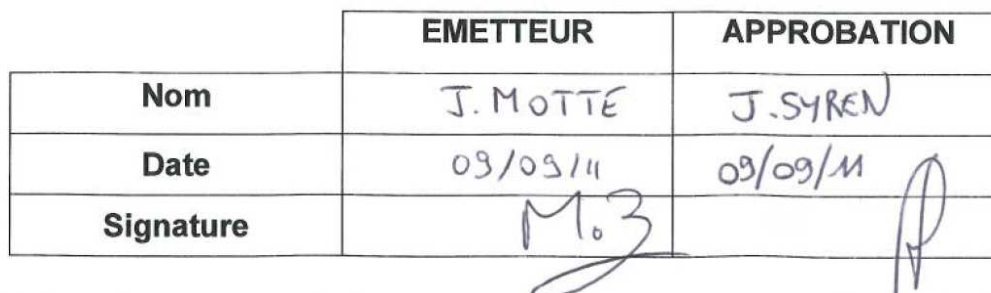 EMETTEUR APPROBATION
Nom J. MOTTE J. SYREN
Date 09/09/11 09/09/11
Signature